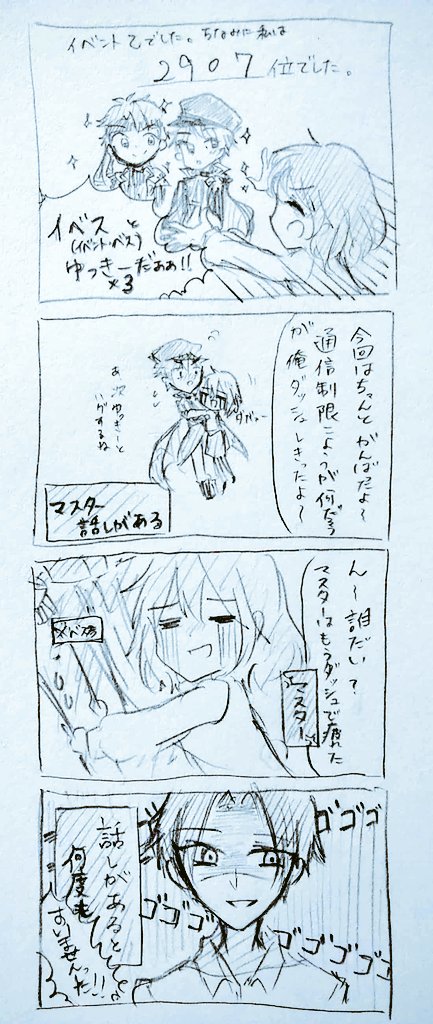 イベント乙でした。ちなみに私は
2907位でした。
イベスと
(イベント・ベス)
ゆっきーだぁぁ!!
×3
今回はちゃんとがんばたよ〜
通信制限こようが何だろう
が俺ダッシュしきったよ〜
あ、次ゆっきーと
ハグするね
マスター
話しがある
ん〜誰だい?
マスターはもうダッシュで疲れた
マスター
ゴゴゴ
ゴゴゴ
ゴゴゴゴゴ
話しがあると
何度も
すいませんっした!!